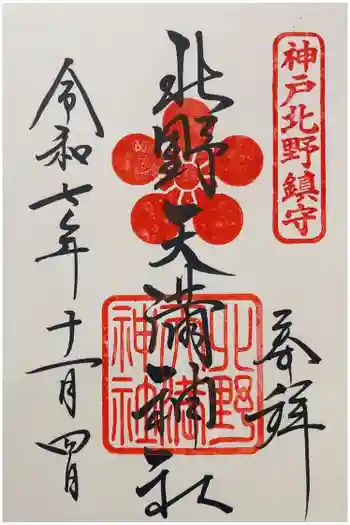 神戸北野鎮守
奉拝
北野天満神社
北野
神社
令和七年十一月四日